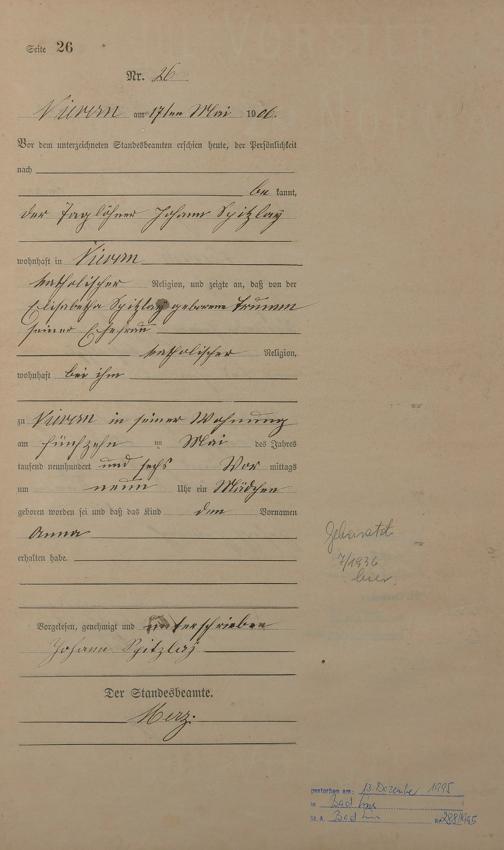 Seite 26
Nr. 26
Viersen am 17ten Mai 1906.
Vor dem unterzeichneten Standesbeamten erschien heute, der Persönlichkeit
nach
be kannt,
der Taglöhner Johann Spitzlay
wohnhaft in
katholischer Religion, und zeigte an, daß von der
Elisabetha Spitzlay geborene Trumm
seiner Ehefrau
katholischer Religion,
wohnhaft bei ihm
zu in seiner Wohnung
am fünfzehn ten Mai des Jahres
tausend neunhundert und sechs Vor mittags
um neun Uhr ein Mädchen
geboren worden sei und daß das Kind den Vornamen
Anna
erhalten habe.
Vorgelesen, genehmigt und unterschrieben
Johann Spitzlay
Der Standesbeamte.
Merz.
Geheiratet
7/1936
hier.
gestorben am: 13. Dezember 1995
in Bad
St. A. Bad Nr.